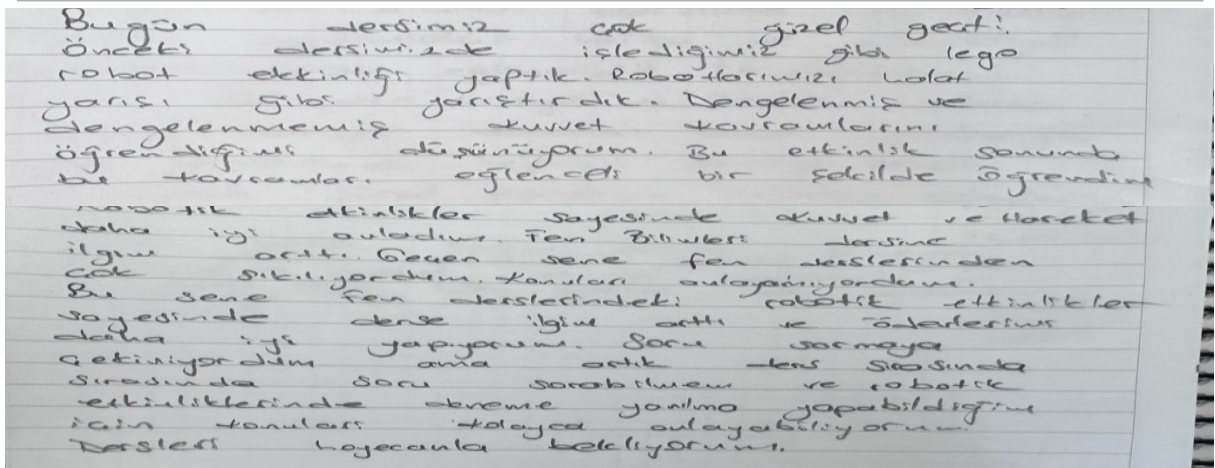 Bugün dersimiz çok güzel geçti.
Önceki dersimizde işlediğimiz gibi lego
robot etkinliği yaptık. Robotlarımızı halat
yarışı gibi yarıştırdık. Dengelenmiş ve
dengelenmemiş kuvvet kavramlarını
öğrendiğimi düşünüyorum. Bu etkinlik sonunda
bu kavramları eğlenceli bir şekilde öğrendim
robotik etkinlikler sayesinde kuvvet ve Hareket
daha iyi anladım. Fen Bilimleri dersine
ilgim arttı. Geçen sene fen derslerinden
çok sıkılıyordum. Konuları anlayamıyordum.
Bu sene fen derslerindeki robotik etkinlikler
sayesinde derse ilgim arttı ve ödevlerimi
daha iyi yapıyorum. Soru sormaya
çekiniyordum ama artık ders sırasında
sırasında soru sorabilmem ve robotik
etkinliklerinde deneme yanılma yapabildiğim
için konuları kolayca anlayabiliyorum.
Dersleri heyecanla bekliyorum.